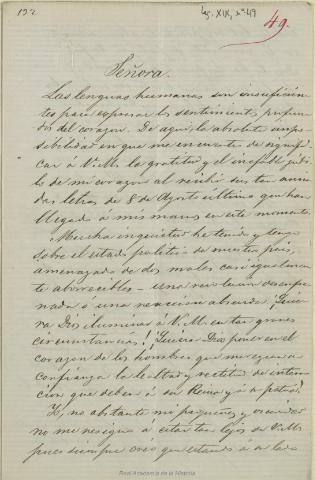 132
Leg. XIX, nº 49
49.
Señora.
Las lenguas humanas son insuficien
tes para expresar los sentimientos profun
dos del corazon. De aquí, la absoluta impo
sibilidad en que me encuentro de signifi
car á V.M. la gratitud y el inefable júbi
lo de mi corazon al recibir sus tan ama
das letras de 8 de Agosto último que han
llegado á mis manos en este momento.
Mucha inquietud he tenido y tengo
sobre el estado político de nuestro pais,
amenazado de dos males casi igualmen
te aborrecibles - una revolucion desenfre
nada ó una reaccion absurda. ¡Quie
ra Dios iluminar á V.M. en tan graves
circunstancias! ¡Quiera Dios poner en el
corazon de los hombres que merezcan su
confianza la lealtad y rectitud de inten
cion que deben á su Reina y á su patria!
Y, no obstante mi pequeñez y oscuridad
no me resigno á estar tan lejos de V.M.
pues siempre creo que estando á su lado
Real Academia de la Historia